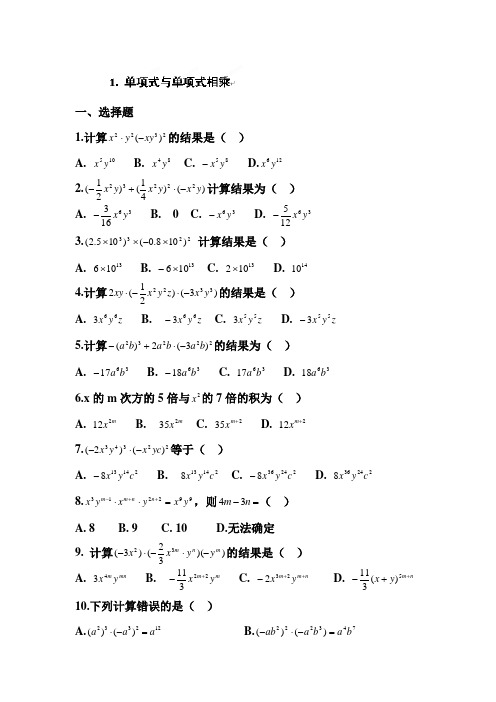 1. 单项式与单项式相乘
一、选择题
1.计算 $x^2 \cdot y^2(-xy^3)^2$ 的结果是( )
A. $x^5y^{10}$ B. $x^4y^8$ C. $-x^5y^8$ D. $x^6y^{12}$
2. $(-\frac{1}{2}x^2y)^3+(\frac{1}{4}x^2y)^2 \cdot (-x^2y)$ 计算结果为( )
A. $-\frac{3}{16}x^6y^3$ B. 0 C. $-x^6y^3$ D. $-\frac{5}{12}x^6y^3$
3. $(2.5\times10^3)^3\times(-0.8\times10^2)^2$ 计算结果是( )
A. $6\times10^{13}$ B. $-6\times10^{13}$ C. $2\times10^{13}$ D. $10^{14}$
4.计算 $2xy \cdot (-\frac{1}{2}x^2y^2z) \cdot (-3x^3y^3)$ 的结果是( )
A. $3x^6y^6z$ B. $-3x^6y^6z$ C. $3x^5y^5z$ D. $-3x^5y^5z$
5.计算 $-(a^2b)^3+2a^2b \cdot (-3a^2b)^2$ 的结果为( )
A. $-17a^6b^3$ B. $-18a^6b^3$ C. $17a^6b^3$ D. $18a^6b^3$
6.x 的 m 次方的 5 倍与 $x^2$ 的 7 倍的积为( )
A. $12x^{2m}$ B. $35x^{2m}$ C. $35x^{m+2}$ D. $12x^{m+2}$
7. $(-2x^3y^4)^3 \cdot (-x^2yc)^2$ 等于( )
A. $-8x^{13}y^{14}c^2$ B. $8x^{13}y^{14}c^2$ C. $-8x^{36}y^{24}c^2$ D. $8x^{36}y^{24}c^2$
8. $x^3y^{m-1} \cdot x^{m+n} \cdot y^{2n+2}=x^9y^9$,则 $4m-3n=$( )
A. 8 B. 9 C. 10 D.无法确定
9. 计算 $(-3x^2) \cdot (-\frac{2}{3}x^{3m} \cdot y^n)(-y^m)$ 的结果是( )
A. $3x^{4m}y^{mn}$ B. $-\frac{11}{3}x^{2m+2}y^m$ C. $-2x^{3m+2}y^{m+n}$ D. $-\frac{11}{3}(x+y)^{5m+n}$
10.下列计算错误的是( )
A. $(a^2)^3 \cdot (-a^3)^2=a^{12}$ B. $(-ab^2)^2 \cdot (-a^2b^3)=a^4b^7$